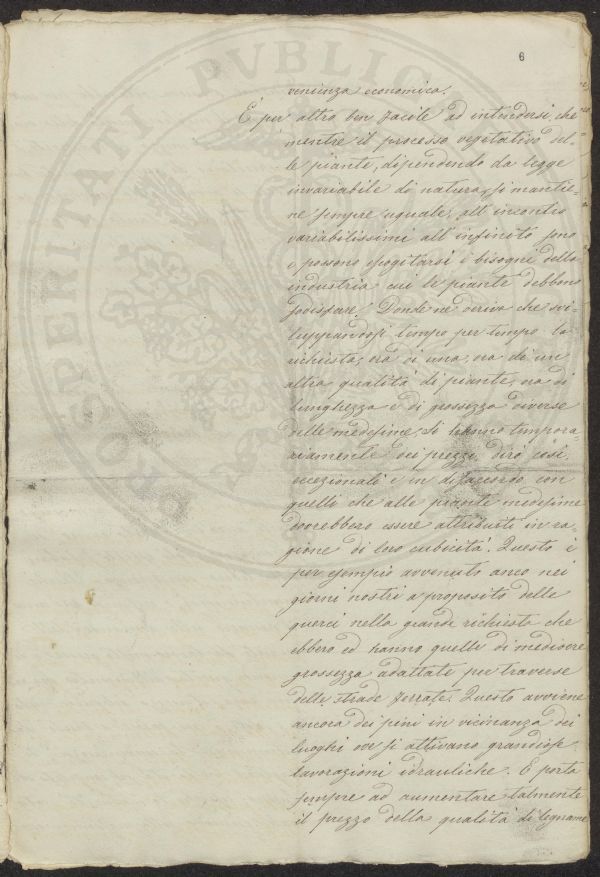 6
venienza economica.
È per altro ben facile ad intendersi, che
mentre il processo vegetativo del-
le piante, dipendendo da legge
invariabile di natura, si mantie-
ne sempre uguale, all'incontro
variabilissimi all'infinito sono
o possono escogitarsi i bisogni della
industria cui le piante debbono
sodisfare. Donde ne deriva che svi-
luppandosi tempo per tempo la
richiesta, ora di una, ora di un
altra qualità di piante, ora di
lunghezza e di grossezza diverse
nelle medesime, si hanno tempora-
riamente dei prezzi, dirò così,
eccezionali e in disaccordo con
quelli che alle piante medesime
dovrebbero essere attribuiti in ra-
gione di loro cubicità. Questo è
per esempio avvenuto anco nei
giorni nostri a proposito delle
querci nella grande richiesta che
ebbero ed hanno quelle di mediocre
grossezza adattate per traverse
delle strade ferrate. Questo avviene
ancora dei pini in vicinanza dei
luoghi ove si attivano grandiose
lavorazioni idrauliche. E porta
sempre ad aumentare talmente
il prezzo della qualità di legname
PROSPERITATI PVBLICAE